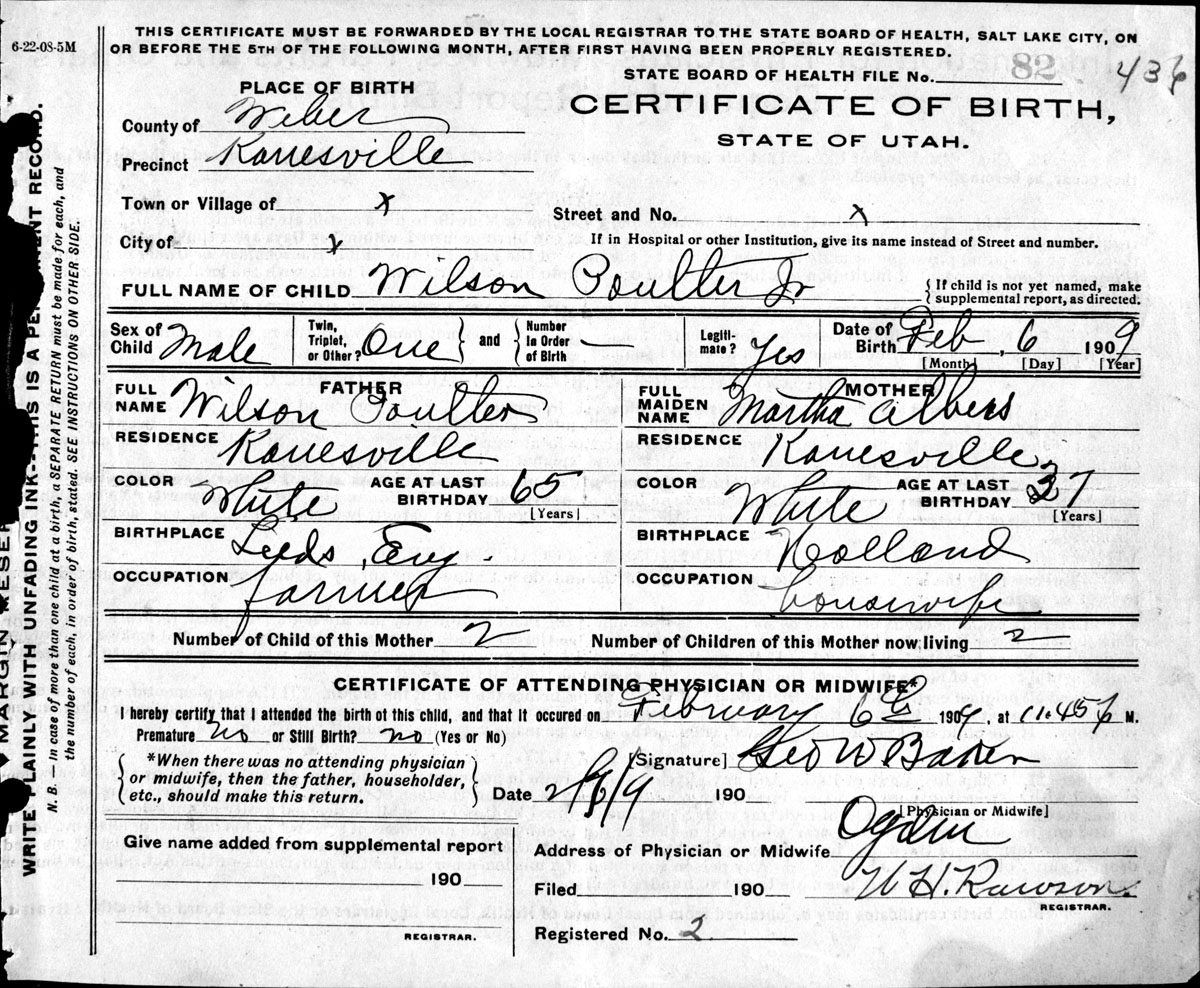 6-22-08-5M
THIS CERTIFICATE MUST BE FORWARDED BY THE LOCAL REGISTRAR TO THE STATE BOARD OF HEALTH, SALT LAKE CITY, ON
OR BEFORE THE 5TH OF THE FOLLOWING MONTH, AFTER FIRST HAVING BEEN PROPERLY REGISTERED.
STATE BOARD OF HEALTH FILE No. 82 436
PLACE OF BIRTH
CERTIFICATE OF BIRTH,
STATE OF UTAH.
County of Weber
Precinct Kanesville
Town or Village of x
Street and No. x
City of x
If in Hospital or other Institution, give its name instead of Street and number.
FULL NAME OF CHILD Wilson Poulter Jr
{ If child is not yet named, make
supplemental report, as directed.
Sex of Child Male
Twin, Triplet, or Other? One } and { Number In Order of Birth —
Legitimate? Yes
Date of Birth Feb, 6 1909
[Month] [Day] [Year]
FATHER
FULL NAME Wilson Poulter
MOTHER
FULL MAIDEN NAME Martha Albers
RESIDENCE Kanesville
RESIDENCE Kanesville
COLOR White AGE AT LAST BIRTHDAY 65 [Years]
COLOR White AGE AT LAST BIRTHDAY 37 [Years]
BIRTHPLACE Leeds, Eng
BIRTHPLACE Holland
OCCUPATION farmer
OCCUPATION housewife
Number of Child of this Mother 2 Number of Children of this Mother now living 2
CERTIFICATE OF ATTENDING PHYSICIAN OR MIDWIFE*
I hereby certify that I attended the birth of this child, and that it occured on February 6th 1909, at 11.45 p M.
Premature no or Still Birth? no (Yes or No)
[Signature] Geo W Baker
*When there was no attending physician
or midwife, then the father, householder,
etc., should make this return.
Date 2/6/9 190
[Physician or Midwife]
Address of Physician or Midwife Ogden
Give name added from supplemental report
190
Filed 190 W H. Rawson.
REGISTRAR.
REGISTRAR.
Registered No. 2
WRITE PLAINLY WITH UNFADING INK--THIS IS A PERMANENT RECORD.
N. B. In case of more than one child at a birth, a SEPARATE RETURN must be made for each, and
the number of each, in order of birth, stated. SEE INSTRUCTIONS ON OTHER SIDE.